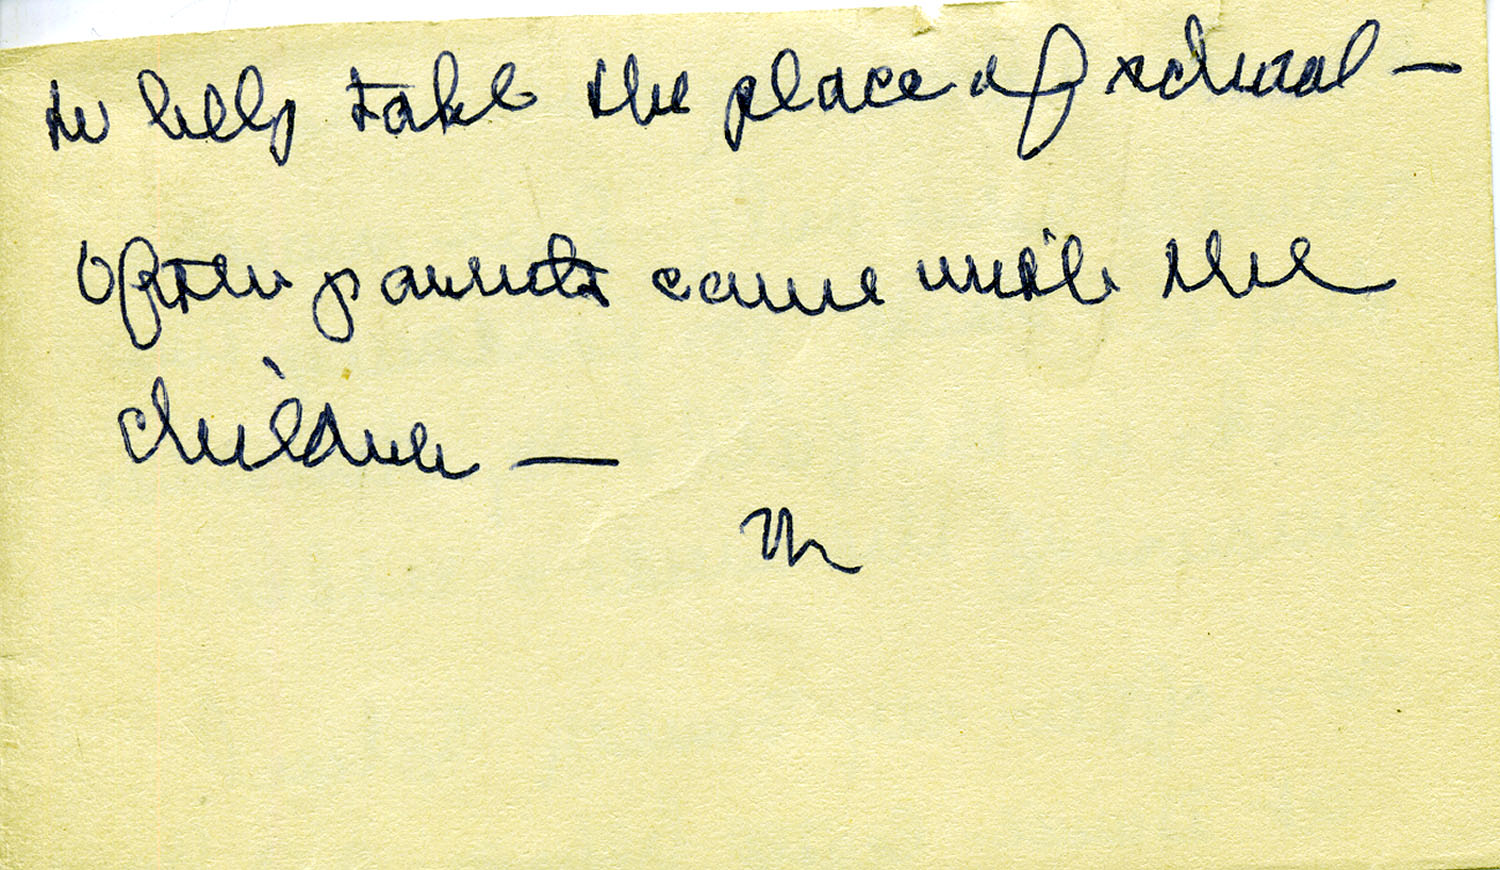 to help take the place of school —
often parents came with the
children —